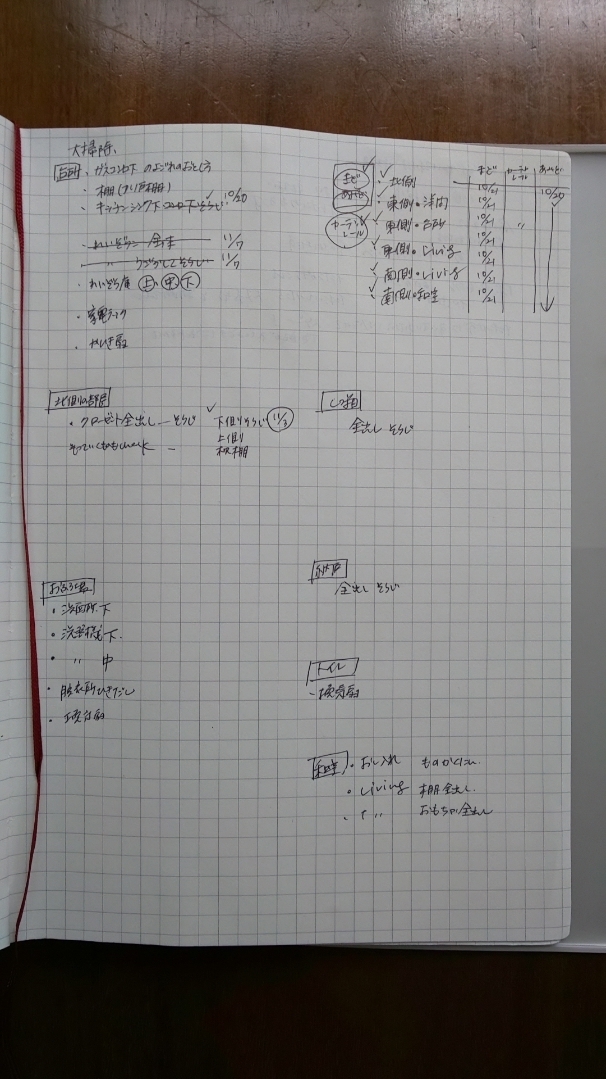 大掃除、
台所 ・ガスコンロ下のよごれのおとし方
・棚(つり戸棚)
・キッチンシンク下コンロ下そうじ ✓ 10/20
・れいぞうこ 全 11/7
そうじ 11/7
・れいぞう庫 上、中、下
・家電ラック
・かんき扇
まど
あみど
カーテンレール
まど カーテンレール あみど
✓・北側 10/21 10/20
✓・東側・洋間 10/21 ✓
✓・東側・台所 10/21 〃
✓・東側・Living 10/21
✓・南側・Living 10/21
✓・南側・和室 10/21
北側の部屋
・クローゼット全出し ― そうじ ✓ 下側りそうじ 11/3
check ― 上側り
枕棚
全出し そうじ
納戸
全出し そうじ
おふろ場
・洗面所下
・洗面横下.
・ 〃 中
・脱衣所ひきだし
・換気扇
トイレ
・換気扇
和室 ・おし入れ ものかくにん
・Living 棚全出し.
・ 〃 おもちゃ全出し